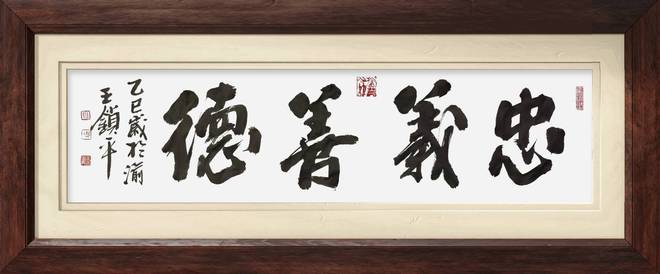 忠義善德
乙巳歲於渝
王鎖平